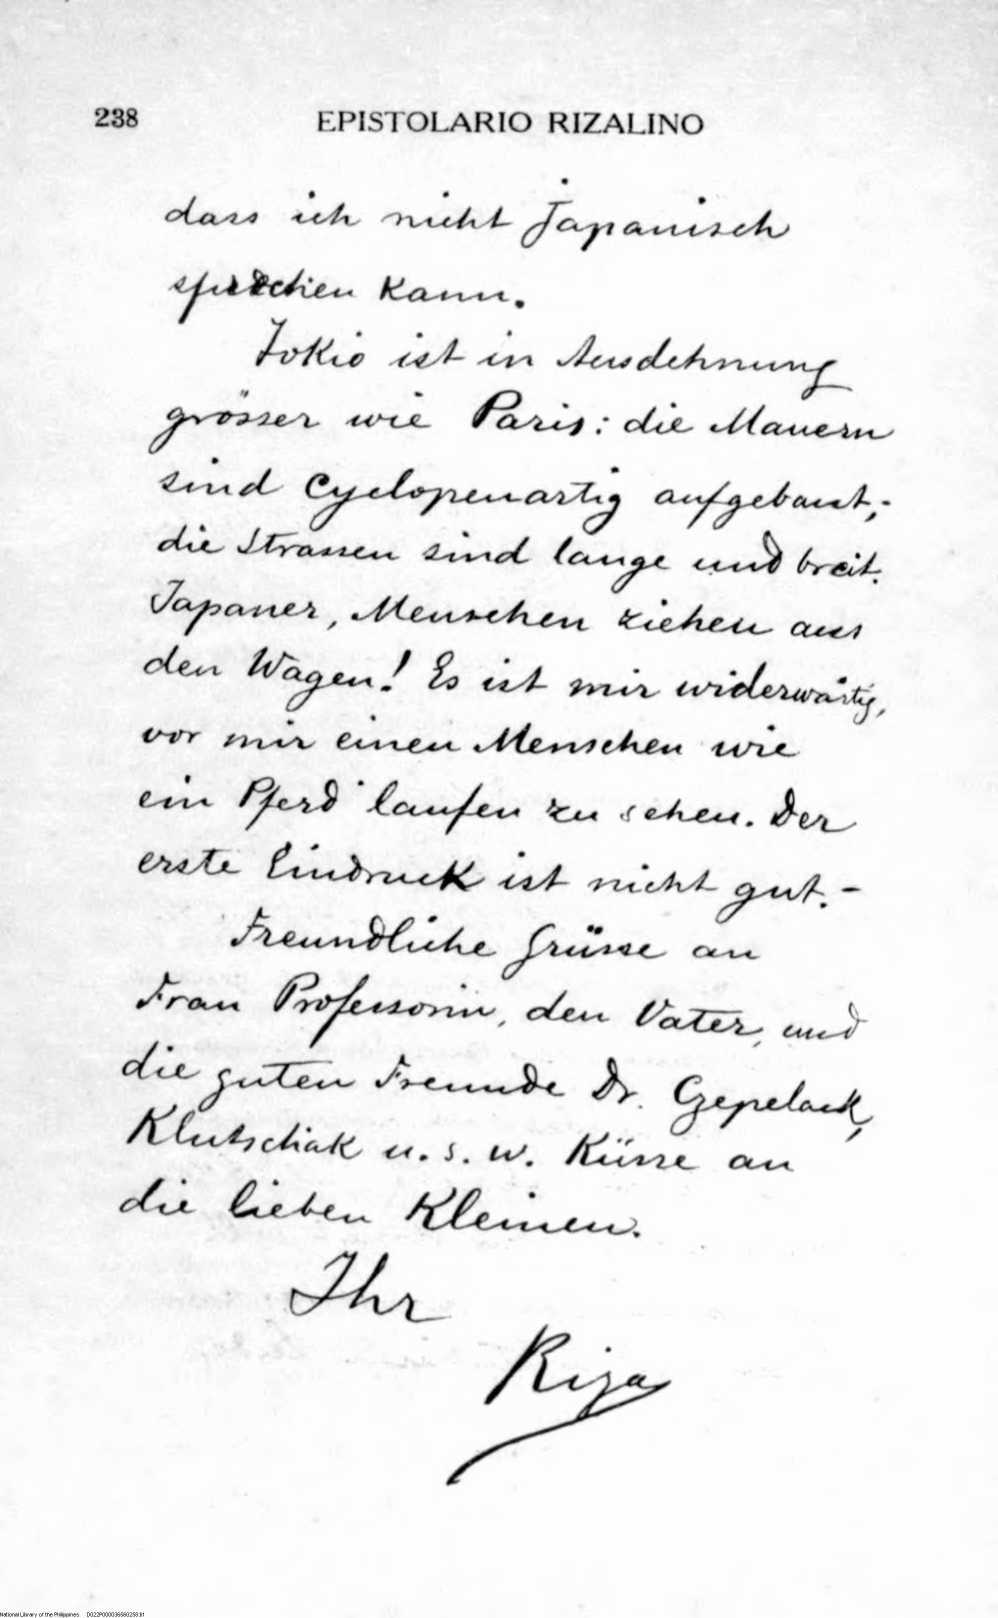 238 EPISTOLARIO RIZALINO
dass ich nicht Japanisch
sprechen kann.
Tokio ist in Ausdehnung
grösser wie Paris: die Mauern
sind Cyclopenartig aufgebaut,-
die Strassen sind lange und breit.
Japaner, Menschen ziehen aus
den Wagen! Es ist mir widerwärtig,
vor mir einen Menschen wie
ein Pferd laufen zu sehen. Der
erste Eindruck ist nicht gut.-
Freundliche Grüsse an
Frau Professorin, den Vater, und
die guten Freunde Dr. Czepelack,
Klutschak u. s. w. Küsse an
die lieben Kleinen.
Ihr
Rizal
National Library of the Philippines